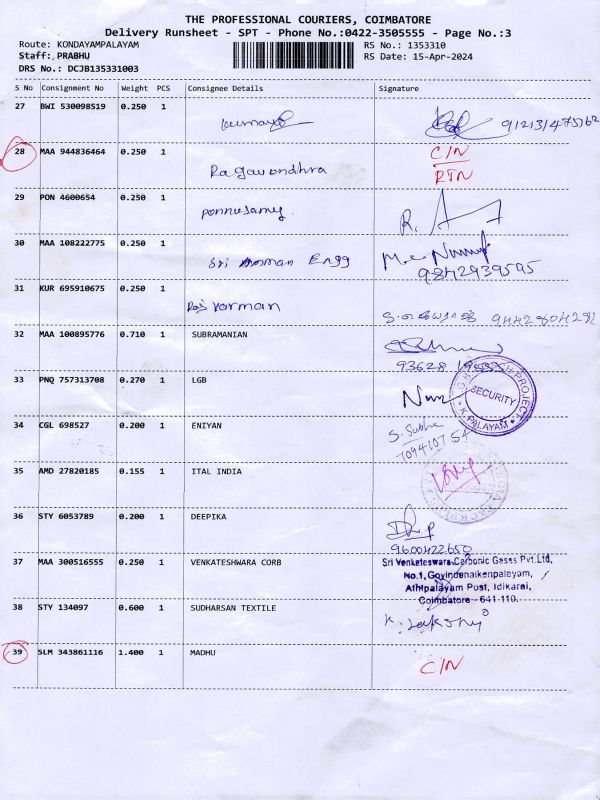 THE PROFESSIONAL COURIERS, COIMBATORE
Delivery Runsheet - SPT - Phone No.:0422-3505555 - Page No.:3
Route: KONDAYAMPALAYAM
RS No.: 1353310
Staff: PRABHU
RS Date: 15-Apr-2024
DRS No.: DCJB135331003
S No Consignment No Weight PCS Consignee Details Signature
27 BWI 530098519 0.250 1
28 MAA 944836464 0.250 1 Ragavendhra C/N
RTN
29 PON 4600654 0.250 1 ponnusamy R.
30 MAA 108222775 0.250 1 Sri Amman Engg M.c
9842939595
31 KUR 695910675 0.250 1 Raj varman
32 MAA 100895776 0.710 1 SUBRAMANIAN
93628
33 PNQ 757313708 0.270 1 LGB
SECURITY
K.PALAYAM
34 CGL 698527 0.200 1 ENIYAN S.
35 AMD 27820185 0.155 1 ITAL INDIA
36 STY 6053789 0.200 1 DEEPIKA
9600422650
37 MAA 300516555 0.250 1 VENKATESHWARA CORB Sri Venkateswara Carbonic Gases Pvt.Ltd,
No.1, Govindanaikenpalayam,
Athipalayam Post, Idikarai,
Coimbatore - 641 110.
38 STY 134097 0.600 1 SUDHARSAN TEXTILE K.
39 SLM 343861116 1.400 1 MADHU C/N